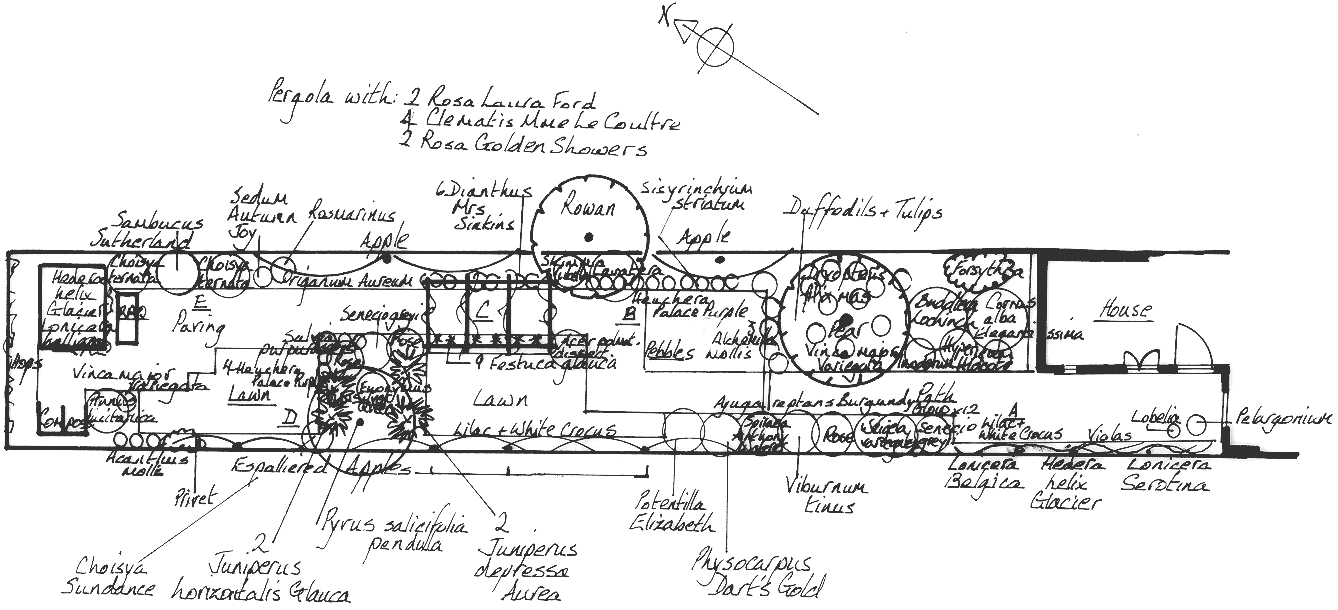 N
Pergola with: 2 Rosa Laura Ford
4 Clematis Mme Le Coultre
2 Rosa Golden Showers
Sambucus
Sutherland
Sedum
Autumn
Joy
Rosmarinus
Apple
6 Dianthus
Mrs
Sinkins
Rowan
Sisyrinchium
striatum
Apple
Daffodils + Tulips
Choisya
ternata
Choisya
ternata
Origanum Aureum
Skimmia
Lavatera
Heuchera
Palace Purple
Dryopteris
filix mas
Pear
Vinca major
Variegata
Forsythia
Buddleia
Lochinch
Cornus
alba
Elegantissima
House
Hedera
helix
Glacier
Lonicera
BBQ
E
Paving
Senecio grey
C
B
Pebbles
3
Alchemilla
mollis
Salvia
purpurea
Rosa
Acer palmat.
dissect.
9 Festuca glauca
Vinca major
Variegata
4 Heuchera
Palace Purple
Lawn
D
Lawn
Compost
Lilac + White Crocus
Ajuga reptans Burgundy
Path
Spiraea
Anthony
Waterer
Rosa
Weigela
variegata
Senecio
grey
A
Lilac +
White Crocus
Violas
Lobelia
Pelargonium
Acanthus
molle
Privet
Espaliered Apples
Lonicera
Belgica
Hedera
helix
Glacier
Lonicera
Serotina
Potentilla
Elizabeth
Viburnum
tinus
Pyrus salicifolia
pendula
2
Juniperus
depressa
Aurea
Physocarpus
Dart's Gold
Choisya
Sundance
2
Juniperus
horizontalis Glauca